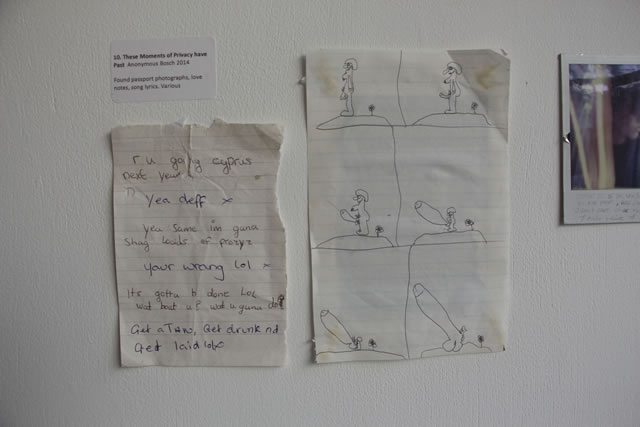 10. These Moments of Privacy have
Past Anonymous Bosch 2014
Found passport photographs, love
notes, song lyrics. Various
r u going cyprus
next year
Yea deff x
yea same im guna
Shag loads of prozyz
Your wrong lol x
It's gotta b done Lol
wat bout u? wat u guna do?
Get a Tan, Get drunk nd
Get laid lolo